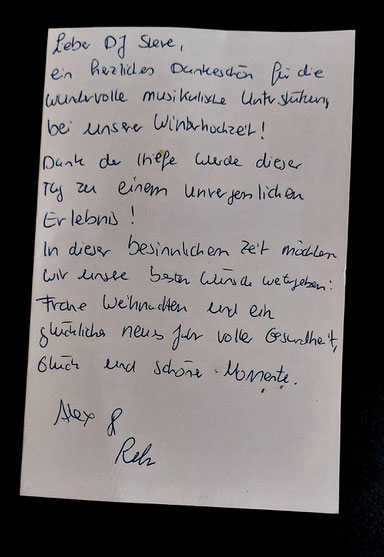 Lieber DJ Steve,
ein herzliches Dankeschön für die
wundervolle musikalische Unterstützung
bei unserer Winterhochzeit!
Dank der Hilfe wurde dieser
Tag zu einem unvergesslichen
Erlebnis!
In dieser besinnlichen Zeit möchten
wir unsere besten Wünsche weitergeben:
Frohe Weihnachten und ein
glückliches neues Jahr voller Gesundheit,
Glück und schöne Momente.
Alex &